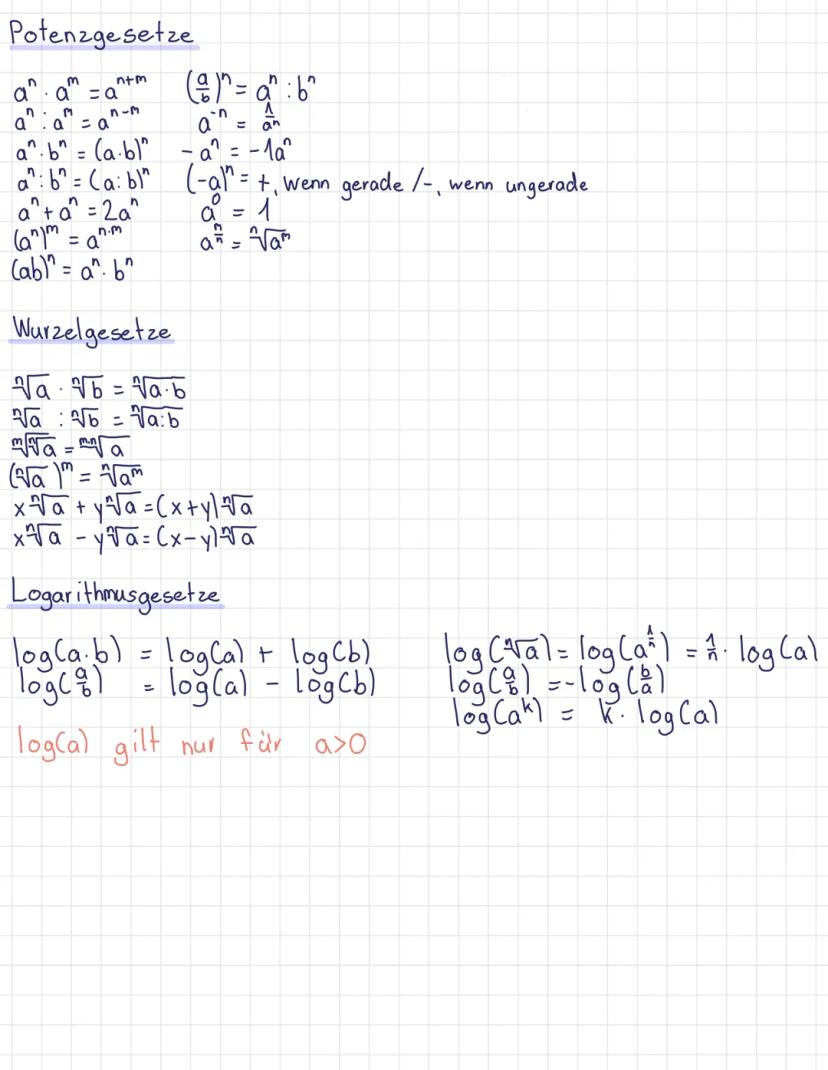 Potenzgesetze
aⁿ · aᵐ = aⁿ⁺ᵐ
aⁿ : aᵐ = aⁿ⁻ᵐ
aⁿ · bⁿ = (a·b)ⁿ
aⁿ : bⁿ = (a:b)ⁿ
aⁿ + aⁿ = 2aⁿ
(aⁿ)ᵐ = aⁿ·ᵐ
(ab)ⁿ = aⁿ · bⁿ
(a/b)ⁿ = aⁿ : bⁿ
a⁻ⁿ = 1/aⁿ
-aⁿ = -1aⁿ
(-a)ⁿ = +, wenn gerade /-, wenn ungerade
a⁰ = 1
a^(m/n) = ⁿ√aᵐ
Wurzelgesetze
ⁿ√a · ⁿ√b = ⁿ√(a·b)
ⁿ√a : ⁿ√b = ⁿ√(a:b)
ᵐ√(ⁿ√a) = ᵐ·ⁿ√a
(ⁿ√a)ᵐ = ⁿ√aᵐ
xⁿ√a + yⁿ√a = (x+y)ⁿ√a
xⁿ√a - yⁿ√a = (x-y)ⁿ√a
Logarithmusgesetze
log(a·b) = log(a) + log(b)
log(a/b) = log(a) - log(b)
log(ⁿ√a) = log(a^(1/n)) = 1/n · log(a)
log(a/b) = -log(b/a)
log(aᵏ) = k · log(a)
log(a) gilt nur für a>0